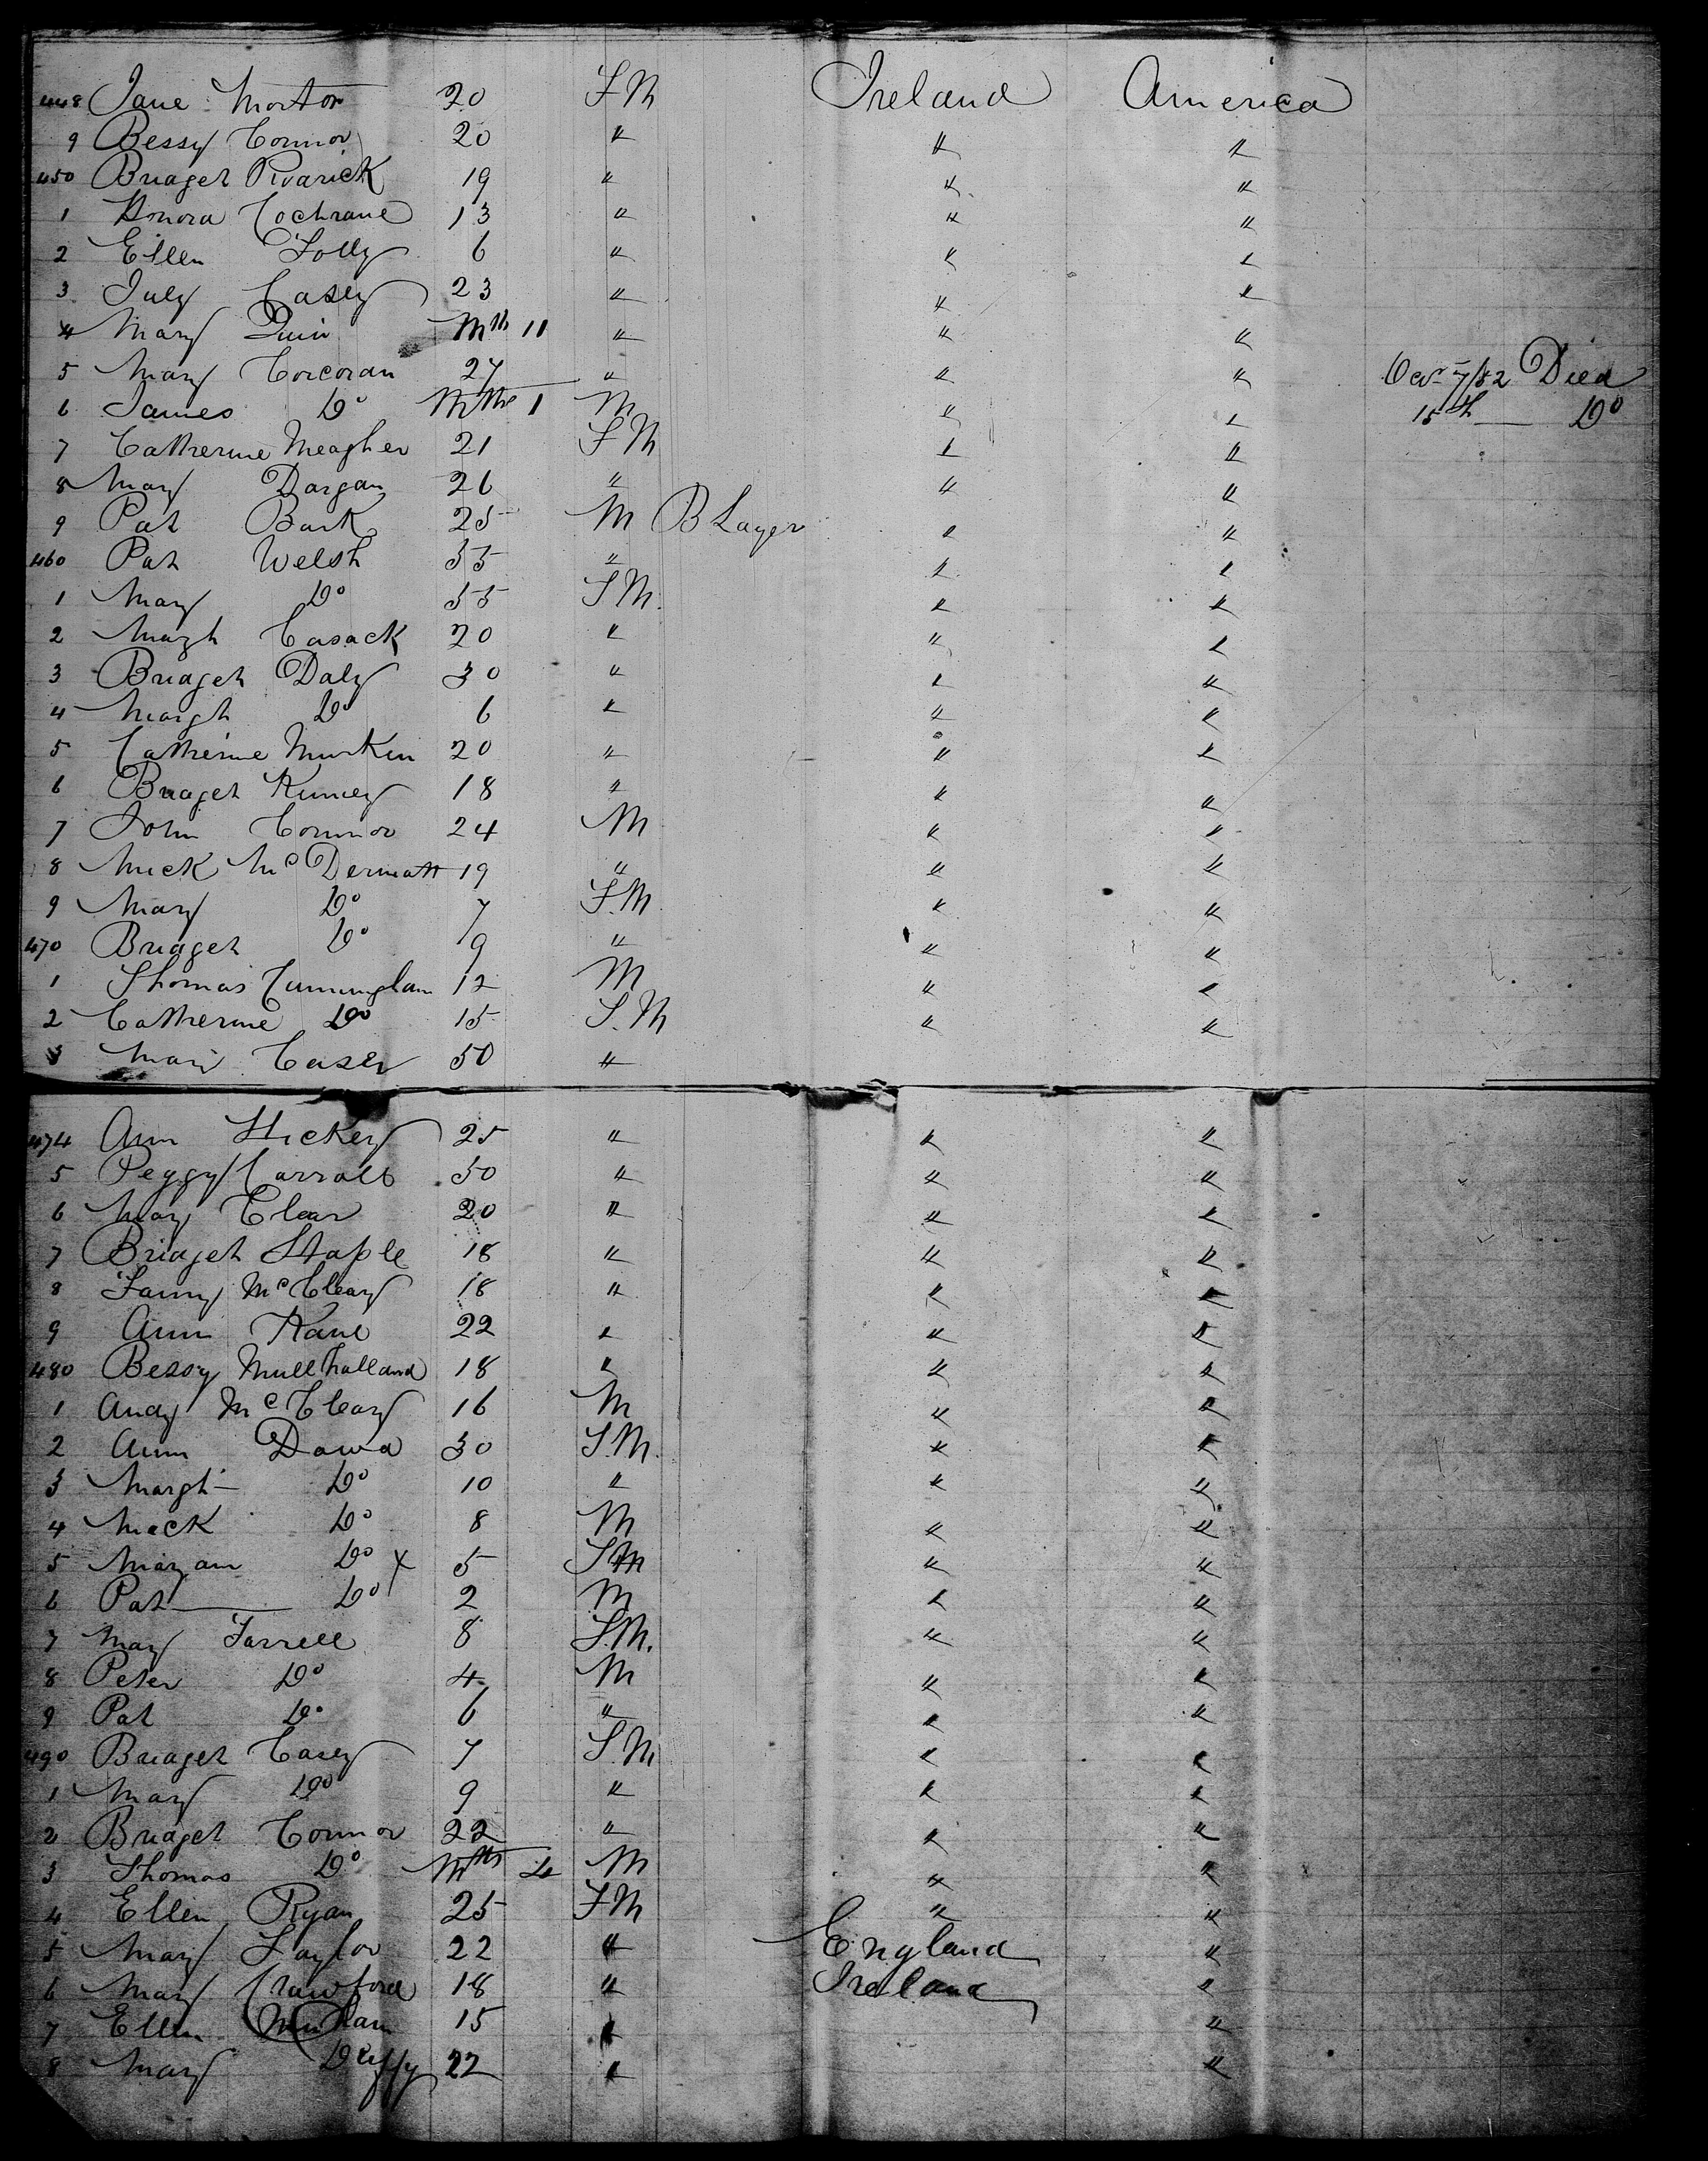 448 Jane Morton 20 FM Ireland America
9 Bessy Connor 20 " " "
450 Bridget 19 " " "
1 Honora Cochrane 13 " " "
2 Ellen Folly 6 " " "
3 July Casey 23 " " "
4 Mary Quin Mth 11 " " "
5 Mary Corcoran 27 " " " Octr 7/52 Died
6 James Do Mths 1 M " " 15th — Do
7 Catherine Meagher 21 FM " "
8 Mary Dargan 26 " " "
9 Pat Bark 25 M B Layer " "
460 Pat Welsh 55 " " "
1 Mary Do 55 FM. " "
2 Margh Casack 20 " " "
3 Bridget Daly 30 " " "
4 Margh Do 6 " " "
5 Catherine 20 " " "
6 Bridget 18 " " "
7 John Connor 24 M " "
8 Mick McDermott 19 " " "
9 Mary Do 7 F.M " "
470 Bridget Do 9 " " "
1 Thomas Cunningham 12 M " "
2 Catherine Do 15 F.M " "
3 Mary Casey 50 "
474 Ann Hickey 25 " " "
5 Peggy Carroll 50 " " "
6 Mary Clear 20 " " "
7 Bridget Staple 18 " " "
8 Fanny McCleary 18 " " "
9 Ann Kane 22 " " "
480 Bessy Mullhalland 18 " " "
1 Andy McCleary 16 M " "
2 Ann Dowd 30 F.M. " "
3 Marght Do 10 " " "
4 Mick Do 8 M " "
5 Maryan Do x 5 FM " "
6 Pat — Do 2 M " "
7 Mary Farrell 8 F.M. " "
8 Peter Do 4 M " "
9 Pat Do 6 " " "
490 Bridget Casey 7 F.M " "
1 Mary Do 9 " " "
2 Bridget Connor 22 " " "
3 Thomas Do Mth 4 M " "
4 Ellen Ryan 25 FM " "
5 Mary Taylor 22 " England "
6 Mary Crawford 18 " Ireland "
7 Ellen 15 " "
8 Mary Duffy 22 " "